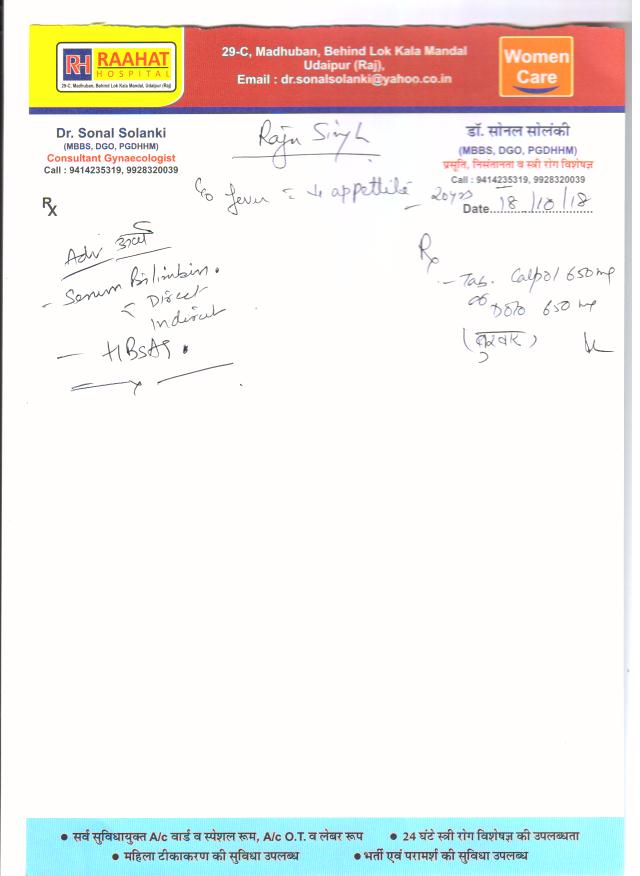 RH RAAHAT
HOSPITAL
29-C, Madhuban, Behind Lok Kala Mandal, Udaipur (Raj)
29-C, Madhuban, Behind Lok Kala Mandal
Udaipur (Raj),
Email : dr.sonalsolanki@yahoo.co.in
Women
Care
Dr. Sonal Solanki
(MBBS, DGO, PGDHHM)
Consultant Gynaecologist
Call : 9414235319, 9928320039
Raju Singh
डॉ. सोनल सोलंकी
(MBBS, DGO, PGDHHM)
प्रसूति, निसंतानता व स्त्री रोग विशेषज्ञ
Call : 9414235319, 9928320039
Date 18/10/18
Rx
C/o fever = ↓ appettite - 20yrs
Adv
- Serum Bilirubin.
< Direct
Indirect
- HBsAg.
Rx
- Tab. Calpol 650 mg
or Dolo 650 mg
(बुखार)
• सर्व सुविधायुक्त A/c वार्ड व स्पेशल रूम, A/c O.T. व लेबर रूप • 24 घंटे स्त्री रोग विशेषज्ञ की उपलब्धता
• महिला टीकाकरण की सुविधा उपलब्ध • भर्ती एवं परामर्श की सुविधा उपलब्ध